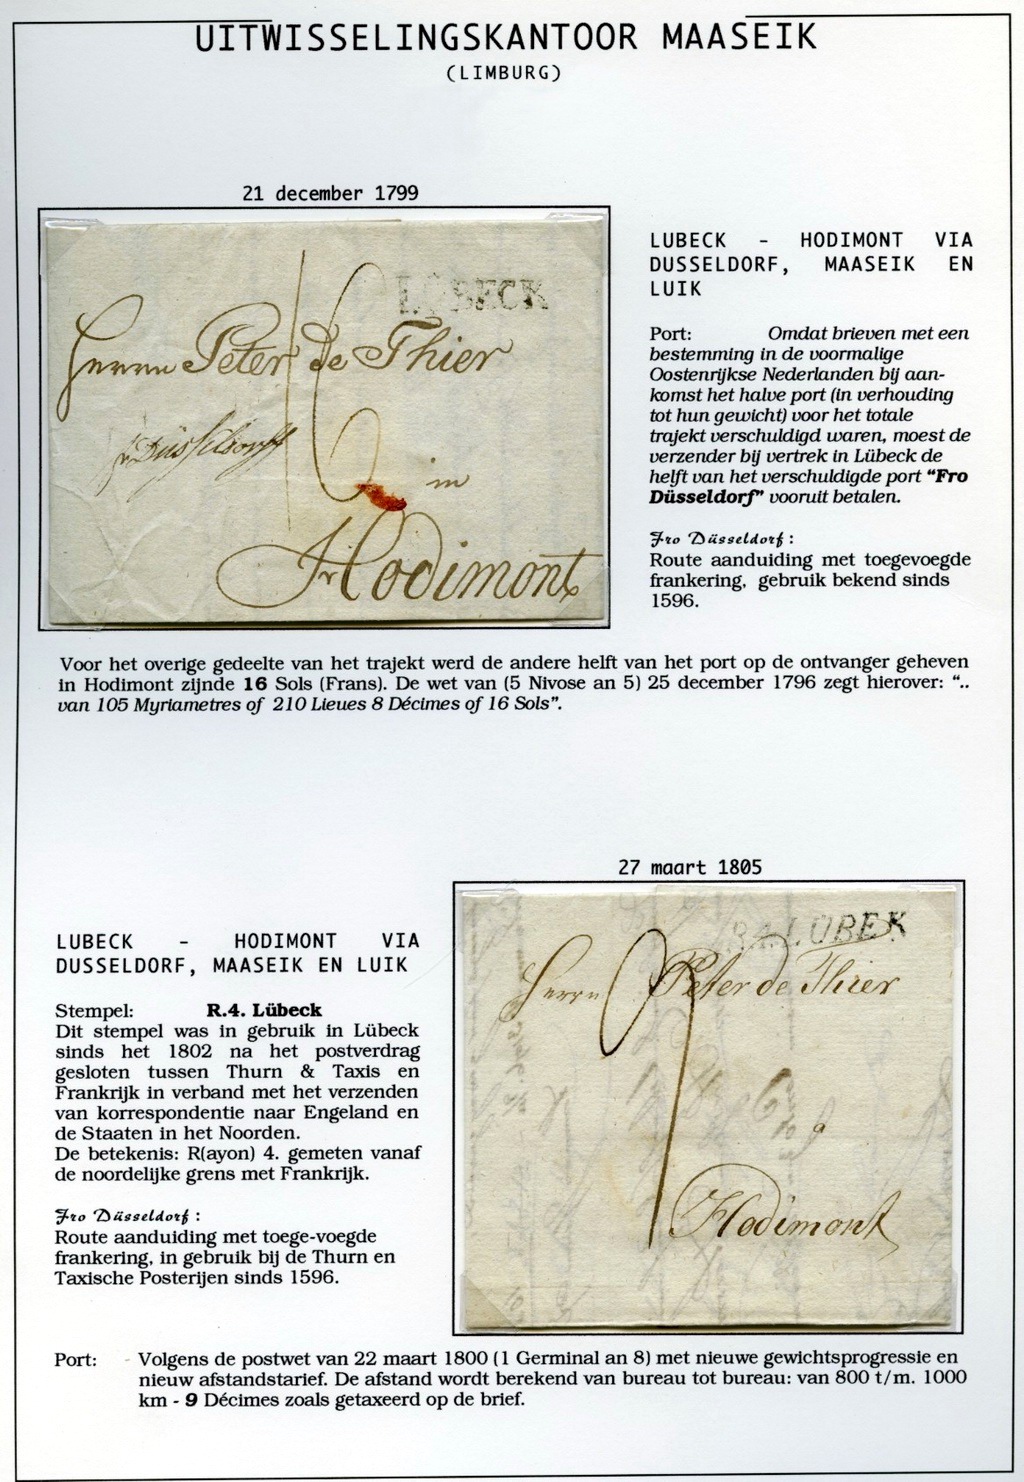 UITWISSELINGSKANTOOR MAASEIK
(LIMBURG)
21 december 1799
LUBECK
Herrn Peter de Thier
16
fr Düsseldorff
in
Hodimont
LUBECK - HODIMONT VIA
DUSSELDORF, MAASEIK EN
LUIK
Port: Omdat brieven met een
bestemming in de voormalige
Oostenrijkse Nederlanden bij aan-
komst het halve port (in verhouding
tot hun gewicht) voor het totale
trajekt verschuldigd waren, moest de
verzender bij vertrek in Lübeck de
helft van het verschuldigde port “Fro
Düsseldorf” vooruit betalen.
Fro Düsseldorf :
Route aanduiding met toegevoegde
frankering, gebruik bekend sinds
1596.
Voor het overige gedeelte van het trajekt werd de andere helft van het port op de ontvanger geheven
in Hodimont zijnde 16 Sols (Frans). De wet van (5 Nivose an 5) 25 december 1796 zegt hierover: “..
van 105 Myriametres of 210 Lieues 8 Décimes of 16 Sols”.
27 maart 1805
LUBECK - HODIMONT VIA
DUSSELDORF, MAASEIK EN LUIK
Stempel: R.4. Lübeck
Dit stempel was in gebruik in Lübeck
sinds het 1802 na het postverdrag
gesloten tussen Thurn & Taxis en
Frankrijk in verband met het verzenden
van korrespondentie naar Engeland en
de Staaten in het Noorden.
De betekenis: R(ayon) 4. gemeten vanaf
de noordelijke grens met Frankrijk.
Fro Düsseldorf :
Route aanduiding met toege-voegde
frankering, in gebruik bij de Thurn en
Taxische Posterijen sinds 1596.
R.4.LÜBEK
Herrn Peter de Thier
9
Hodimont
Port: - Volgens de postwet van 22 maart 1800 (1 Germinal an 8) met nieuwe gewichtsprogressie en
nieuw afstandstarief. De afstand wordt berekend van bureau tot bureau: van 800 t/m. 1000
km - 9 Décimes zoals getaxeerd op de brief.